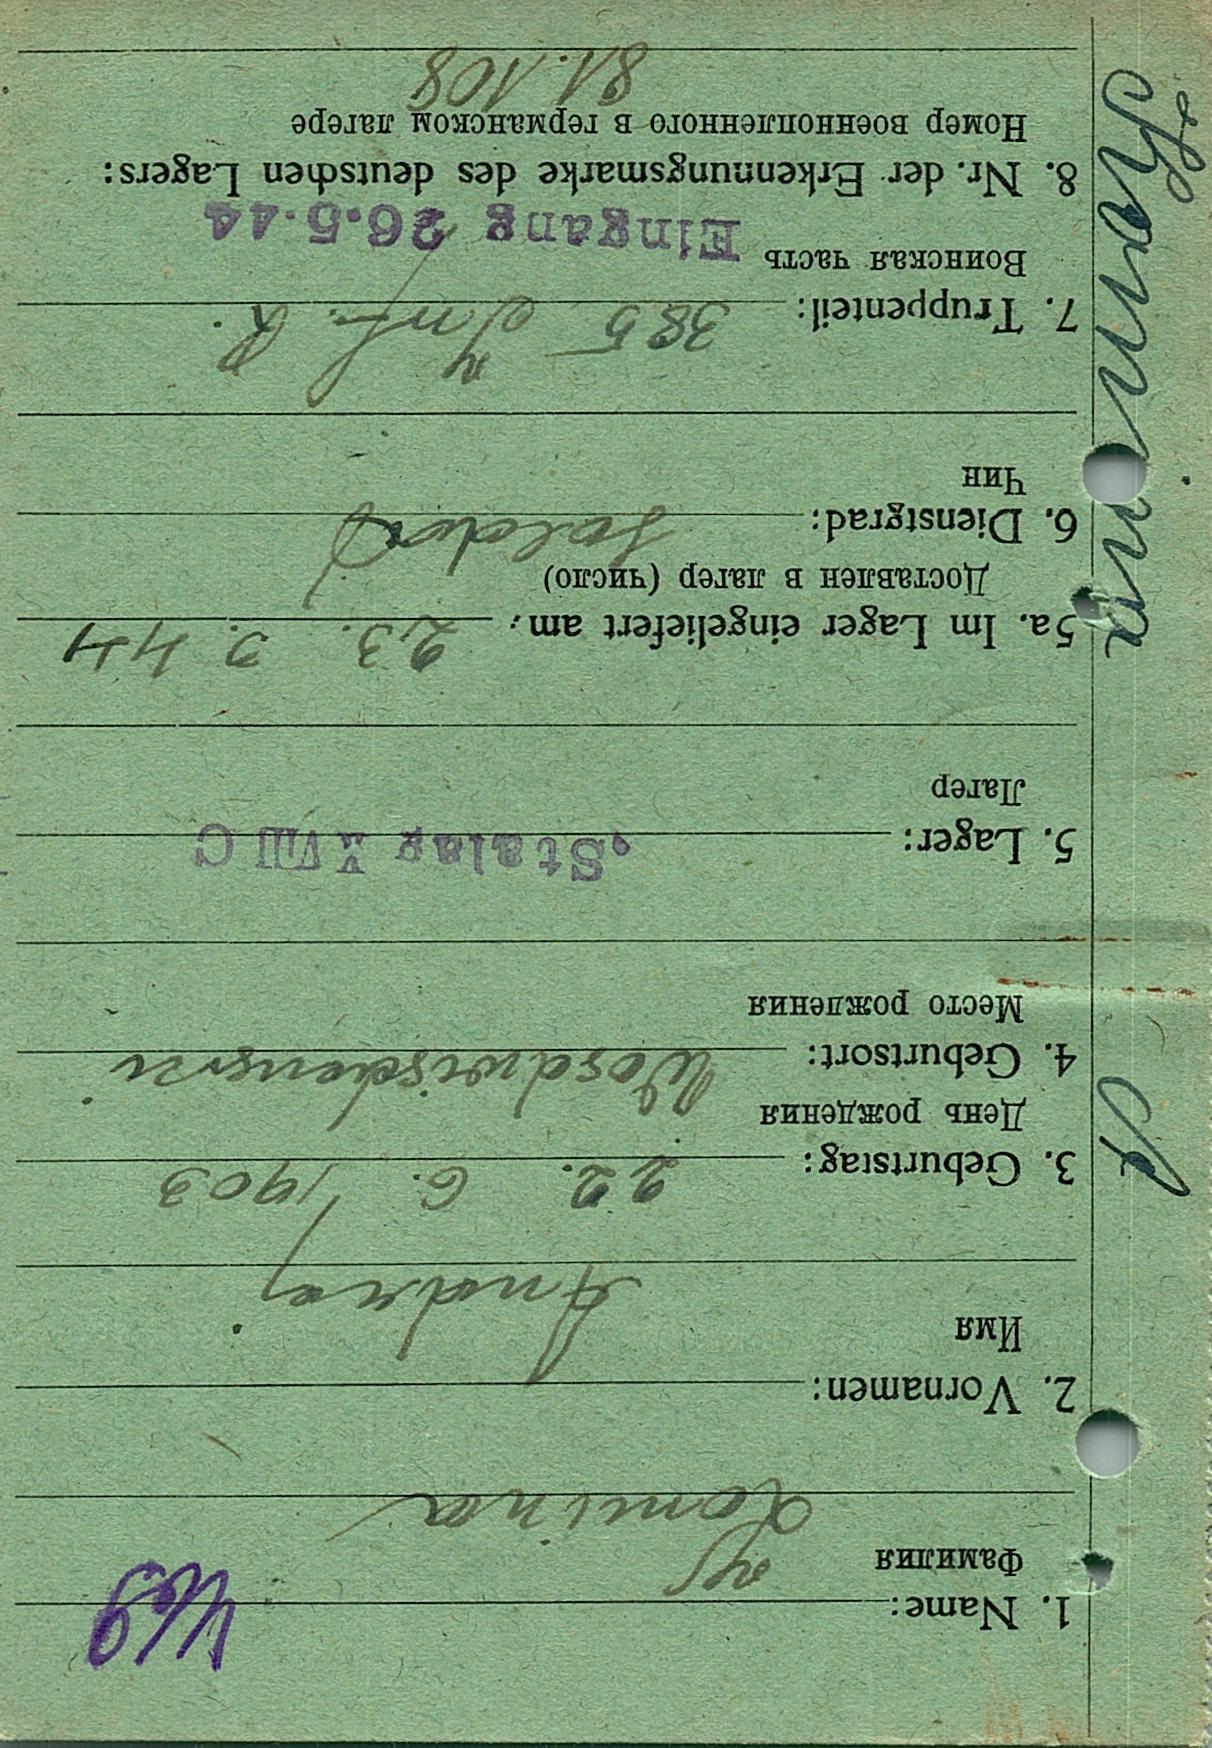 1. Name:
Фамилия
2. Vornamen:
Имя
Andrej
3. Geburtstag: 22. 6. 1903
День рождения
4. Geburtsort:
Место рождения
5. Lager: Stalag XVIII C
Лагер
5a. Im Lager eingeliefert am: 23. 3. 44
Доставлен в лагер (число)
6. Dienstgrad: Soldat
Чин
7. Truppenteil: 385 Inf. R.
Воинская часть
Eingang 26.5.44
8. Nr. der Erkennungsmarke des deutschen Lagers:
Номер военнопленного в германском лагере
81.108